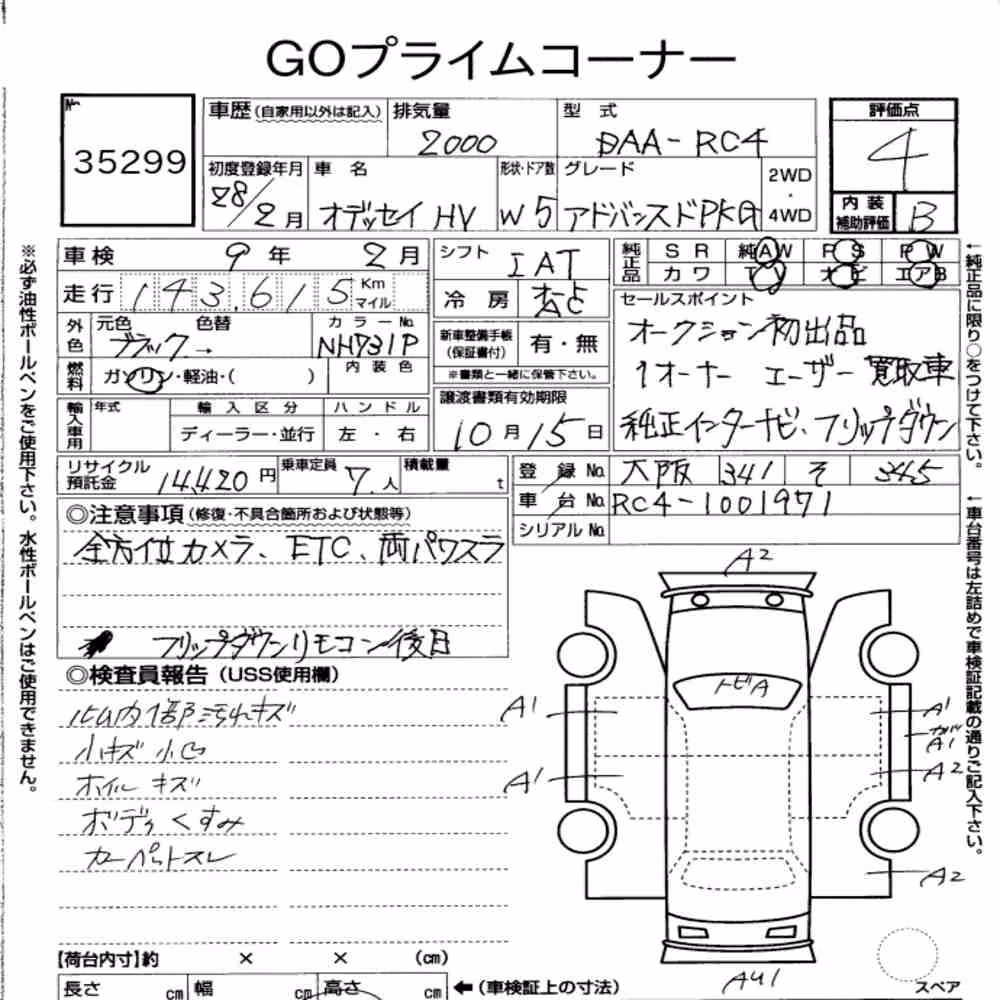 GOプライムコーナー
No.
35299
車歴(自家用以外は記入) 排気量 型式 評価点
2000 DAA-RC4 4
初度登録年月 車名 形状・ドア数 グレード 2WD・4WD 内装補助評価
28/2月 オデッセイ HV W 5 アドバンスドPKG B
車検 9年 2月 シフト IAT 純正品 SR 純AW PS PW
カワ TV ナビ エアB
走行 143,615 Km マイル 冷房
セールスポイント
外色 元色 色替 カラーNo.
ブラック→ NH731P
新車整備手帳(保証書付) 有・無
※書類と一緒に保管下さい。
オークション初出品
1オーナー ユーザー買取車
燃料 ガソリン・軽油・( ) 内装色
輸入車用 年式 輸入区分 ハンドル
ディーラー・並行 左・右
譲渡書類有効期限
10月15日
純正インターナビ、フリップダウン
リサイクル預託金 14,420円 乗車定員 7人 積載量 t
登録No. 大阪 341 そ 345
車台No. RC4-1001971
シリアルNo.
◎注意事項(修復・不具合箇所および状態等)
全方位カメラ、ETC、両パワスラ
フリップダウンリモコン後日
◎検査員報告(USS使用欄)
内外部汚れキズ
小キズ 小凹
ホイルキズ
ボディくすみ
カーペットスレ
A2
トビA
A1
A1
A1
A1
A2
A2
スペア
【荷台内寸】約 × × (cm)
長さ cm 幅 cm 高さ cm ←(車検証上の寸法)
※必ず油性ボールペンをご使用下さい。水性ボールペンはご使用できません。
←純正品に限り○をつけて下さい。
←車台番号は左詰めで車検証記載の通りご記入下さい。